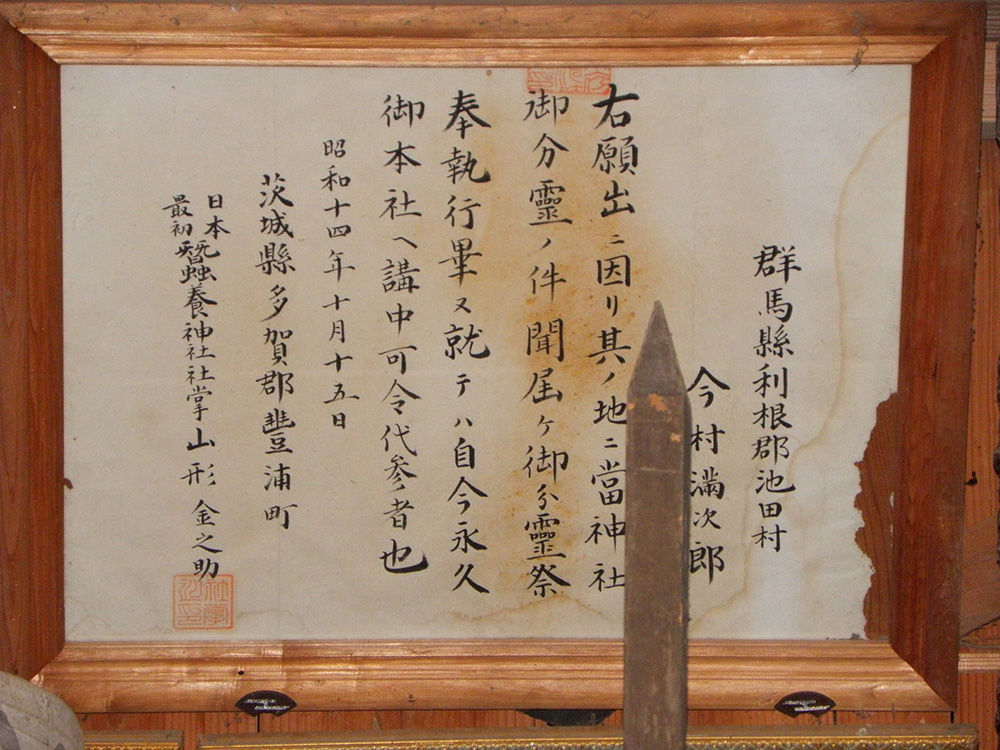 群馬縣利根郡池田村
今村滿次郎
右願出ニ因リ其ノ地ニ當神社
御分靈ノ件聞届ケ御分靈祭
奉執行畢又就テハ自今永久
御本社ヘ講中可令代参者也
昭和十四年十月十五日
茨城縣多賀郡豐浦町
日本最初蠶養神社社掌山形金之助